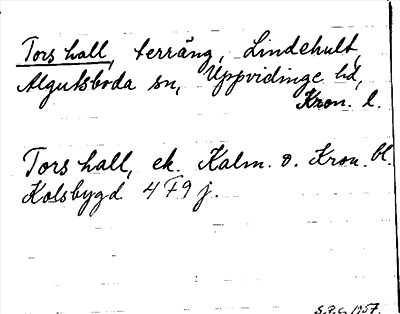 Tors hall, terräng, Lindehult,
Algutsboda sn, Uppvidinge hd,
Kron. l.
Tors hall, ek. Kalm. o. Kron. bl.
Kolsbygd 479 j.
S.P.G. 1957.